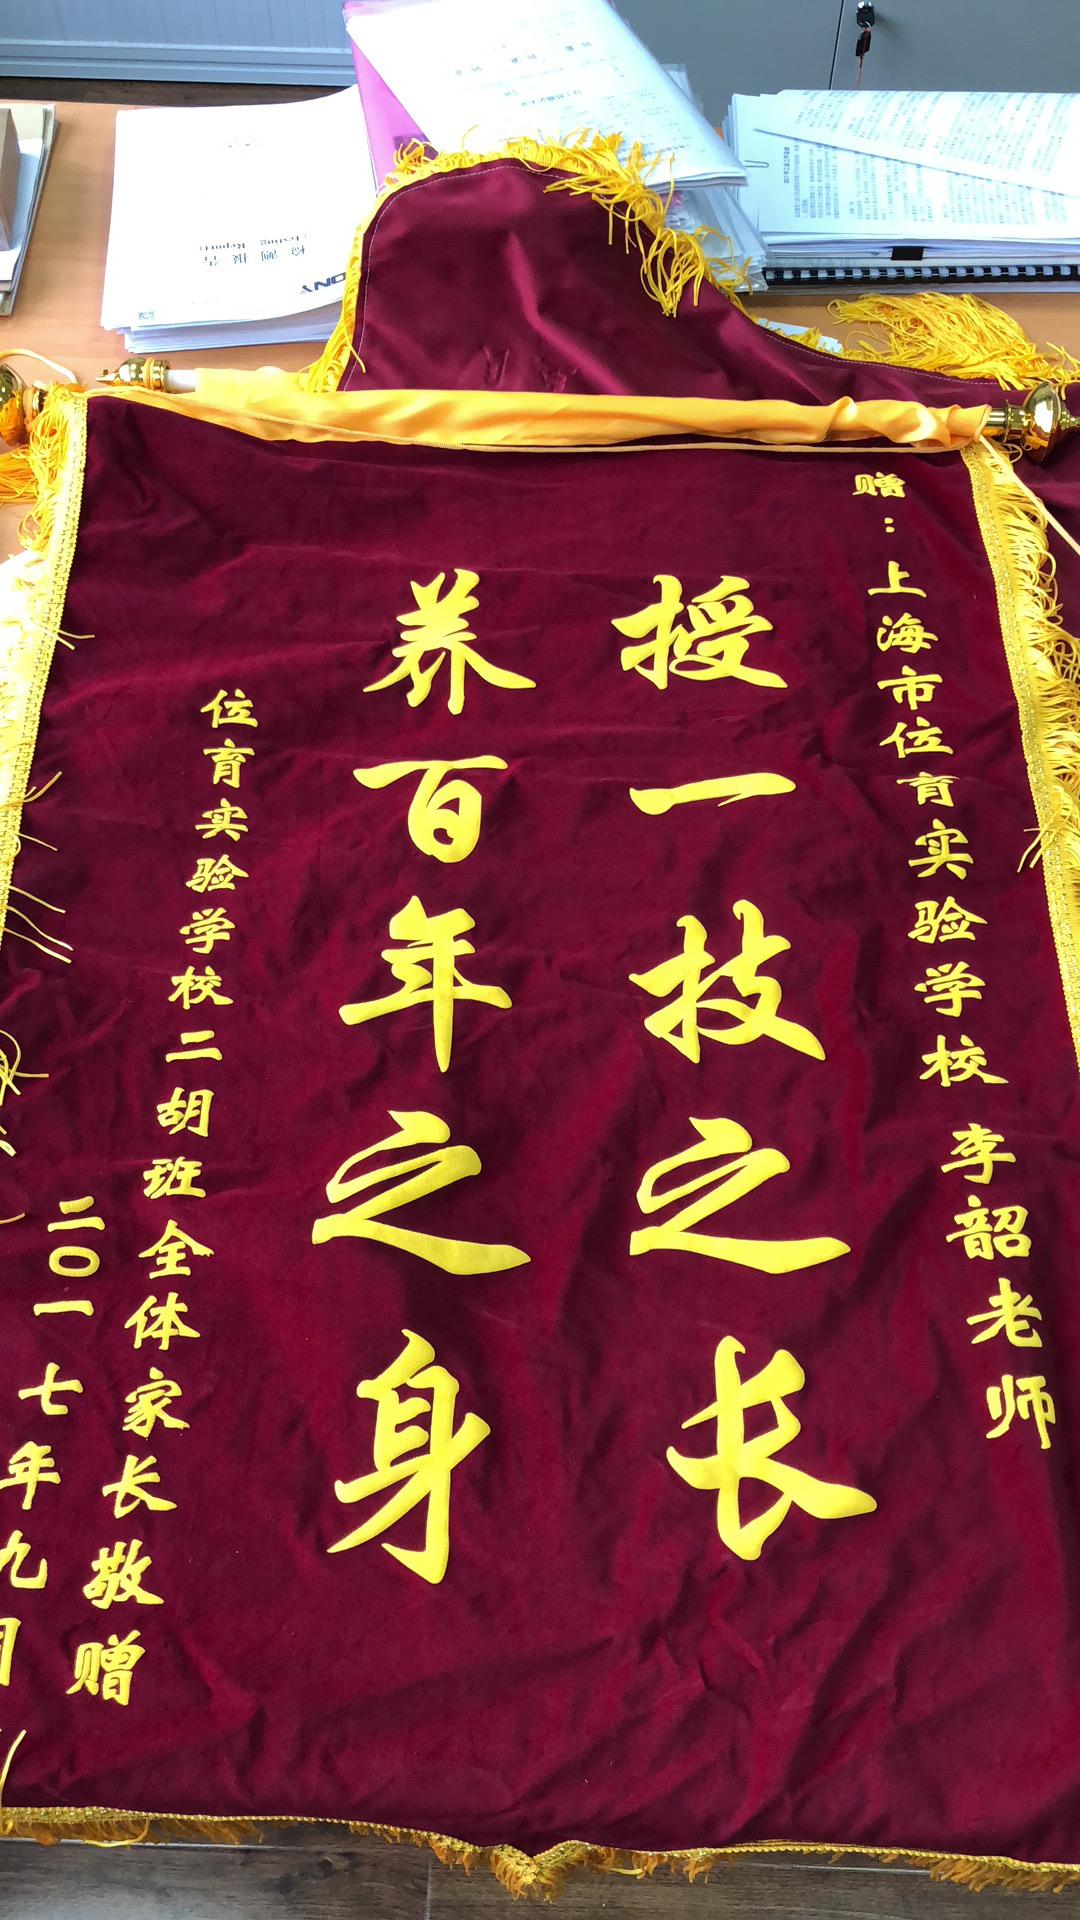 赠：上海市位育实验学校 李韶老师
授一技之长
养百年之身
位育实验学校二胡班全体家长敬赠
二〇一七年九月
检测报告
(Testing Report)